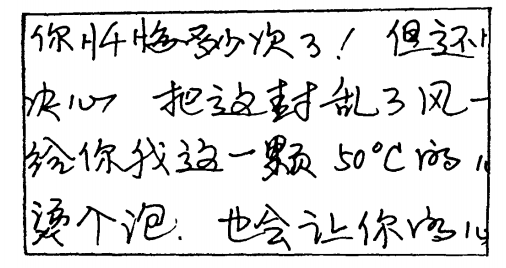 你忏悔多少次了！但这
决心 把这封乱了风一
给你我这一颗50°C的
烫个泡. 也会让你的心